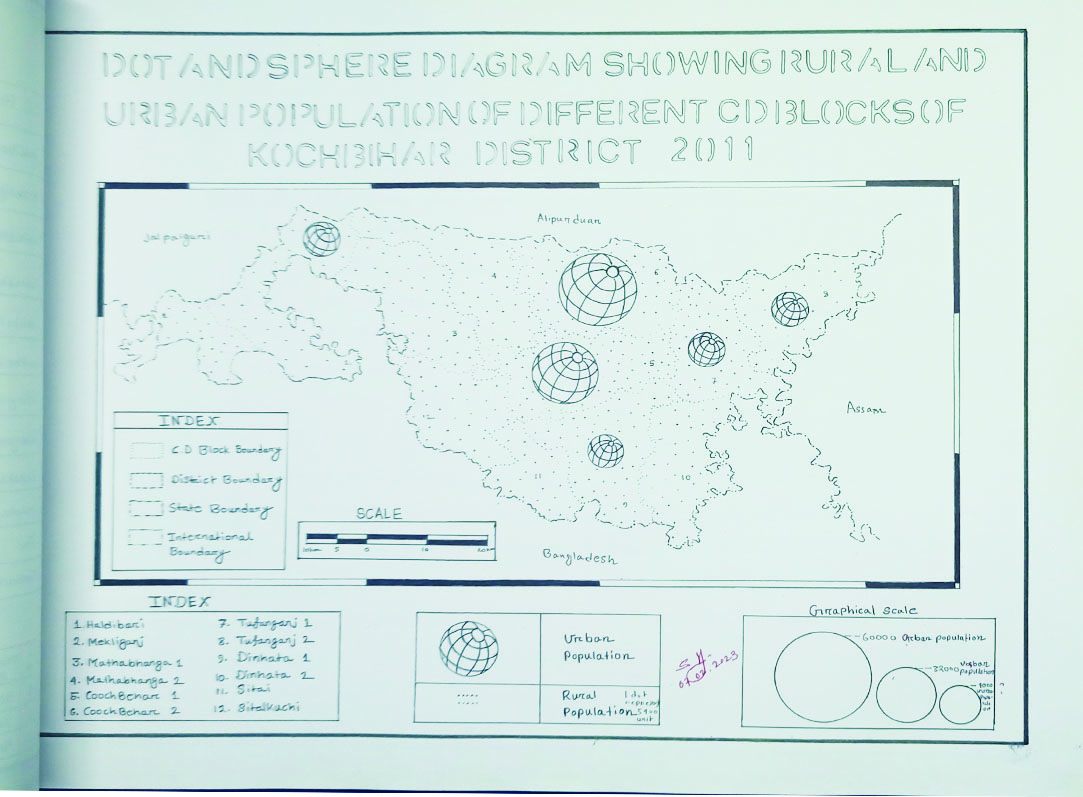 DOT AND SPHERE DIAGRAM SHOWING RURAL AND
URBAN POPULATION OF DIFFERENT CD BLOCKS OF
KOCHBIHAR DISTRICT 2011
Jalpaiguri
Alipurduar
4
6
8
3
5
7
Assam
11
10
9
Bangladesh
INDEX
C.D Block Boundary
District Boundary
State Boundary
International
Boundary
SCALE
5 0 10
INDEX
1. Haldibari
2. Mekliganj
3. Mathabhanga 1
4. Mathabhanga 2
5. CoochBehar 1
6. CoochBehar 2
7. Tufanganj 1
8. Tufanganj 2
9. Dinhata 1
10. Dinhata 2
11. Sitai
12. Sitalkuchi
Urban
Population
Rural
Population
1 dot
unit
07.02.2023
Graphical scale
60000 Urban population
32000 Urban
population